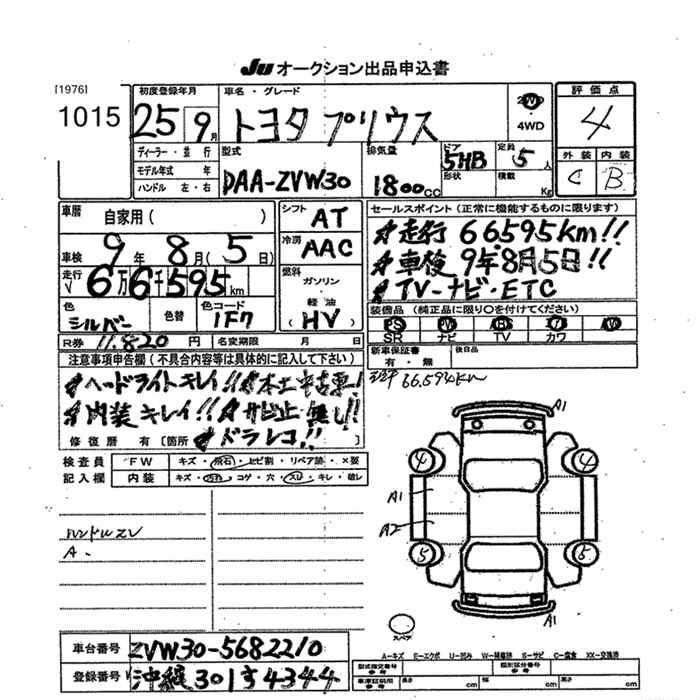 JU オークション出品申込書
[1976]
1015
初度登録年月
25 9月
車名・グレード
トヨタ プリウス
2WD
・
4WD
評価点
4
外装 内装
C B
ディーラー・並行
モデル年式 年
ハンドル 左・右
型式
DAA-ZVW30
排気量
1800cc
ドア
5HB
形状
定員
5人
積載
Kg
車歴 自家用( )
車検 9年 8月(5日)
走行 6万6千595km
色 シルバー
色替
色コード 1F7
R券 11.820円
名変期限 月 日
シフト AT
冷房 AAC
燃料
ガソリン
・
軽油
(HV)
セールスポイント(正常に機能するものに限ります)
★走行 66.595km!!
★車検 9年8月5日!!
★TV-ナビ・ETC
装備品(純正品に限り○を付けてください)
PS PW ABS エア AW
SR ナビ TV カワ
新車保証書
有・無
後日品
66.594km
注意事項申告欄(不具合内容等は具体的に記入して下さい)
★ヘッドライトキレイ!!★本土中古車!
★内装キレイ!!★サビ止無し!!
修復歴 有〔箇所 ★ドラレコ!! 〕
検査員
記入欄
FW キズ・飛石・ヒビ割・リペア跡・×要
内装 キズ・汚れ・コゲ・穴・スレ・キレ・破レ
ハンドルスレ
A.
A1
4 4
A1
A2
5 5
A1
スペア
A-キズ E-エクボ U-凹み W-補修跡 S-サビ C-腐食 XX-交換済
型式指定番号
参考
類別区分番号
参考
車庫証明用
参考
長さ cm 幅 cm 高さ cm
車台番号 ZVW30-5682210
登録番号 沖縄301す4344